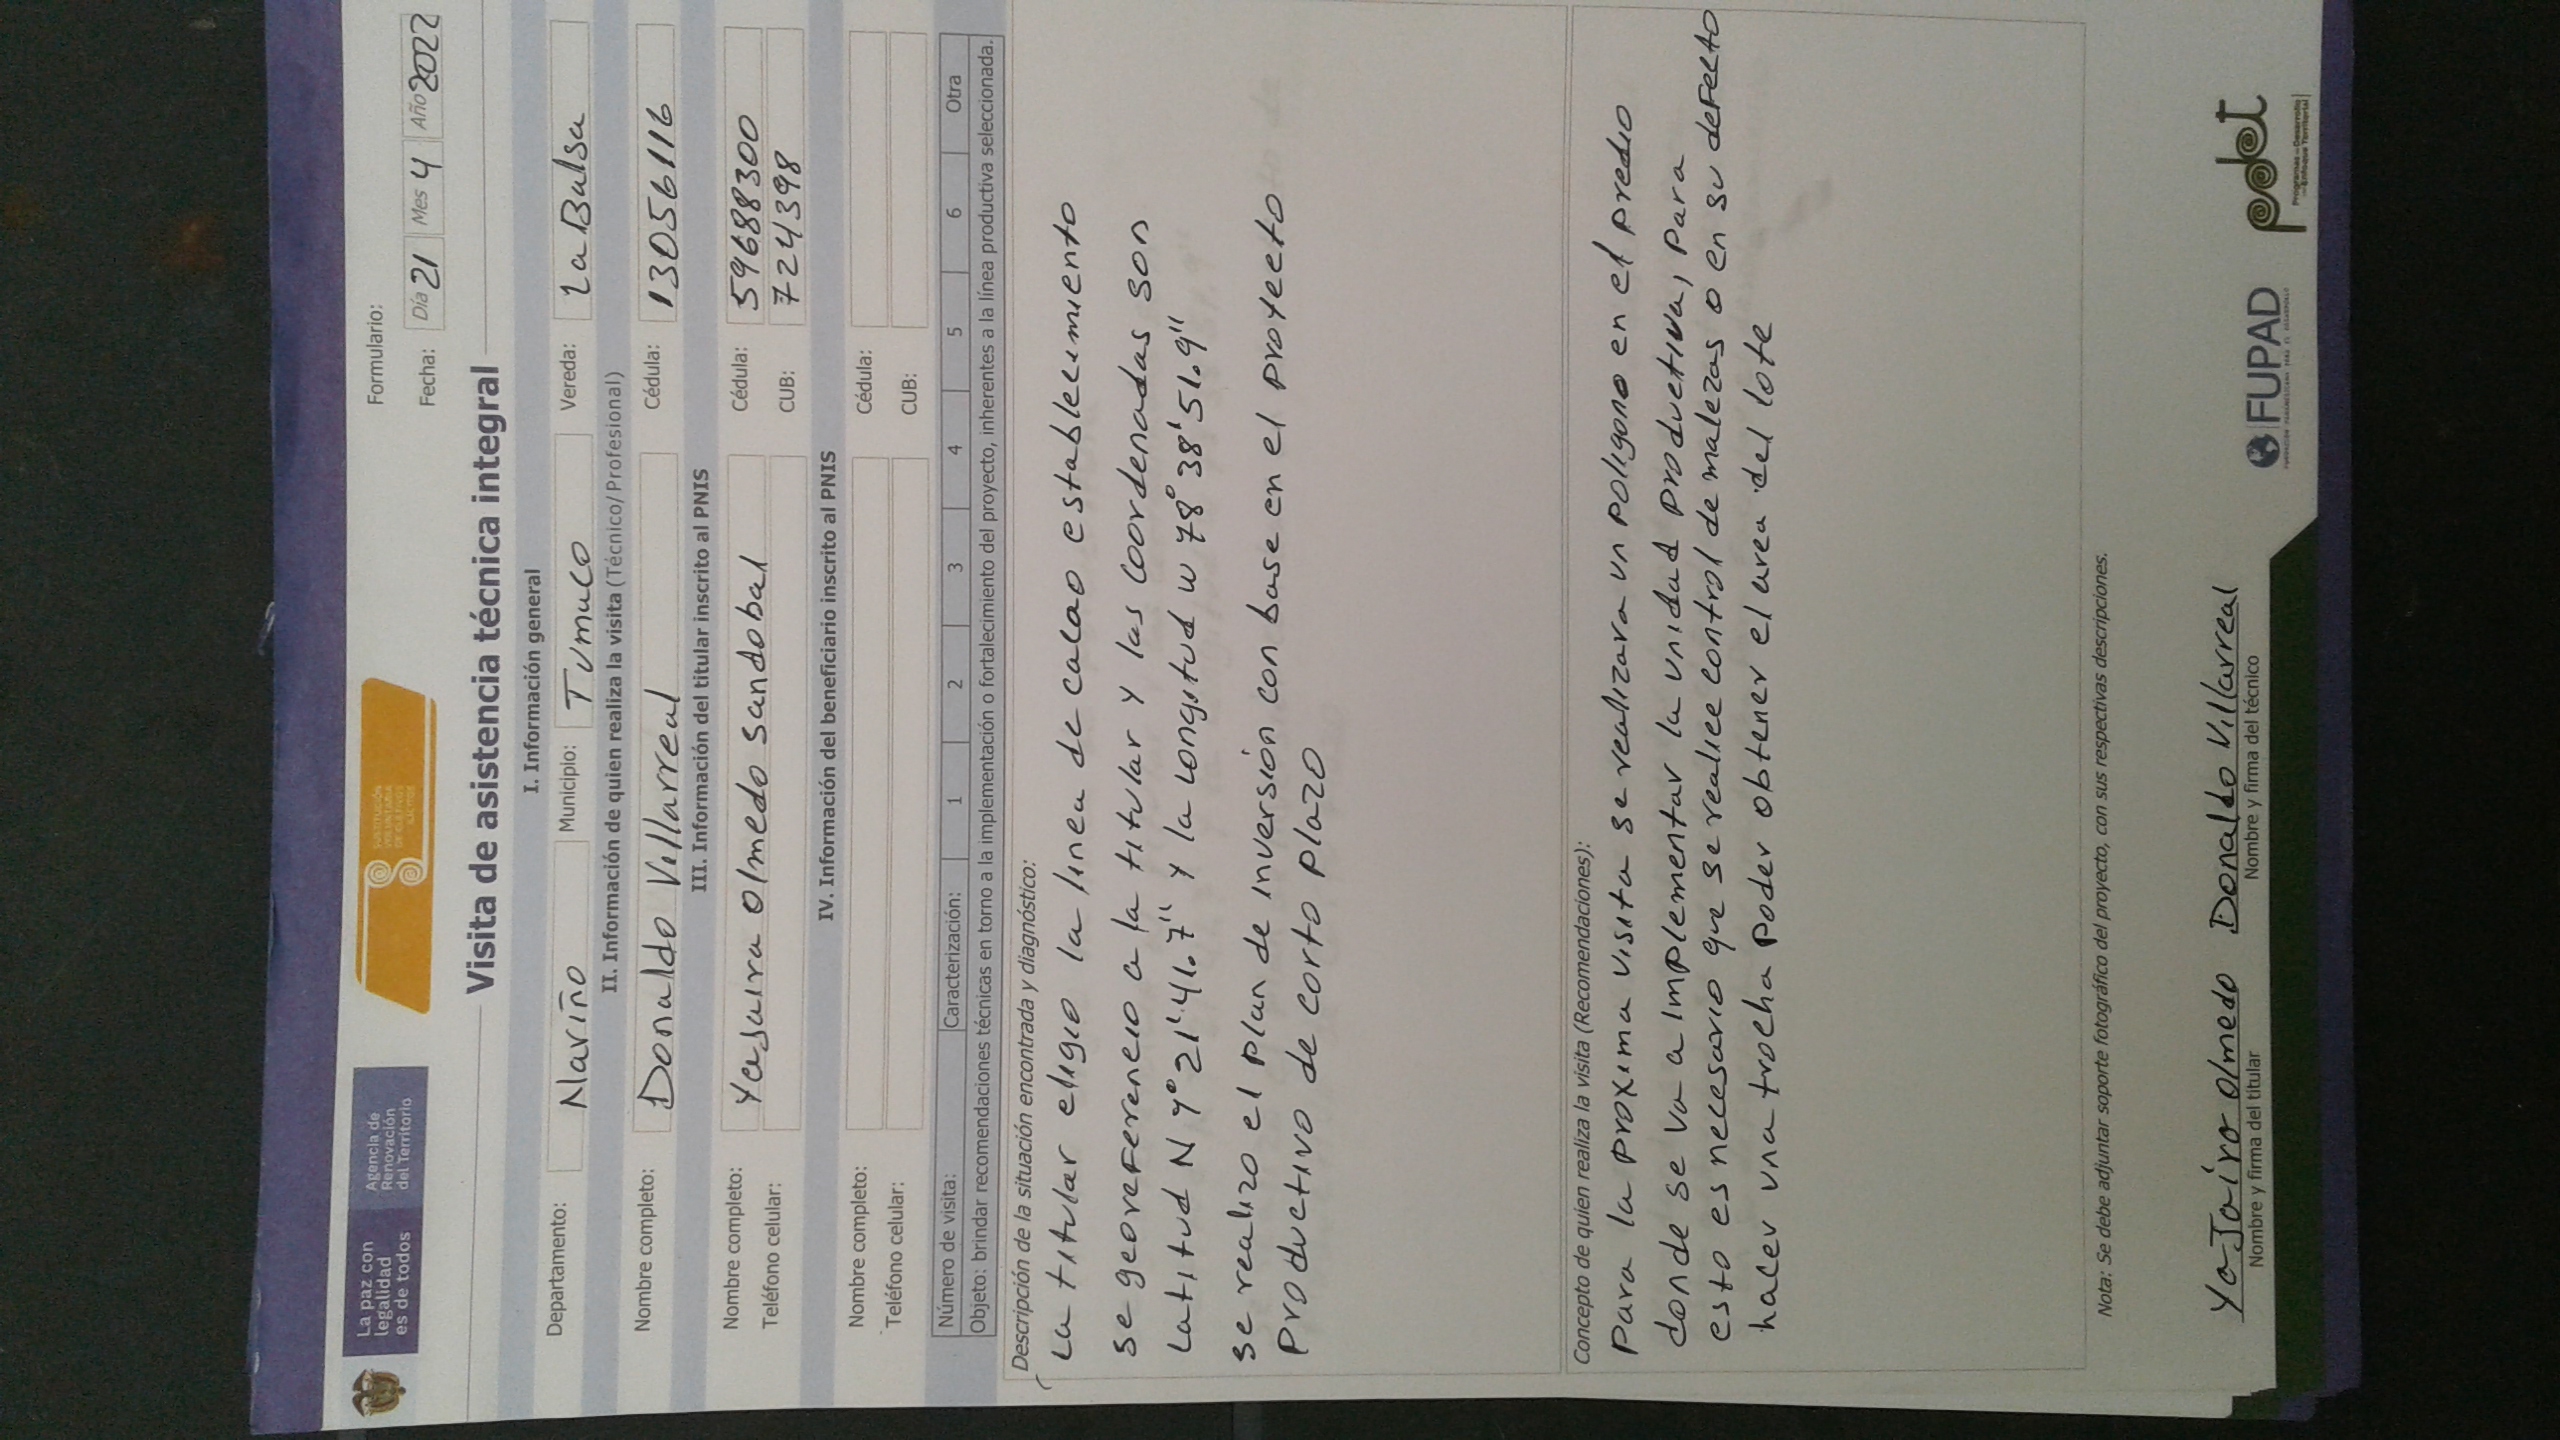 La paz con
legalidad
es de todos
Agencia de
Renovación
del Territorio
SUSTITUCIÓN
VOLUNTARIA
DE CULTIVOS
ILÍCITOS
Formulario:
Fecha: Día 21 Mes 4 Año 2022
Visita de asistencia técnica integral
I. Información general
Departamento: Nariño Municipio: Tumaco Vereda: La Balsa
II. Información de quien realiza la visita (Técnico/Profesional)
Nombre completo: Donaldo Villarreal Cédula: 13056116
III. Información del titular inscrito al PNIS
Nombre completo: Yajaira Olmedo sandobal Cédula: 59688300
Teléfono celular: CUB: 724398
IV. Información del beneficiario inscrito al PNIS
Nombre completo: Cédula:
Teléfono celular: CUB:
Número de visita: Caracterización: 1 2 3 4 5 6 Otra
Objeto: brindar recomendaciones técnicas en torno a la implementación o fortalecimiento del proyecto, inherentes a la línea productiva seleccionada.
Descripción de la situación encontrada y diagnóstico:
La titular eligio la linea de cacao establecimiento
se georeferencio a la titular y las coordenadas son
Latitud N 4° 21' 41.7" y la longitud w 78° 38' 51.9"
se realizo el plan de inversión con base en el proyecto
productivo de corto plazo
Concepto de quien realiza la visita (Recomendaciones):
Para la proxima visita se realizara un poligono en el predio
donde se va a implementar la unidad productiva, para
esto es necesario que se realice control de malezas o en su defecto
hacer una trocha poder obtener el area del lote
Nota: Se debe adjuntar soporte fotográfico del proyecto, con sus respectivas descripciones.
YaJairo Olmedo Donaldo Villarreal
Nombre y firma del titular Nombre y firma del técnico
FUPAD
FUNDACIÓN PANAMERICANA PARA EL DESARROLLO
pdet
Programas de Desarrollo
con Enfoque Territorial